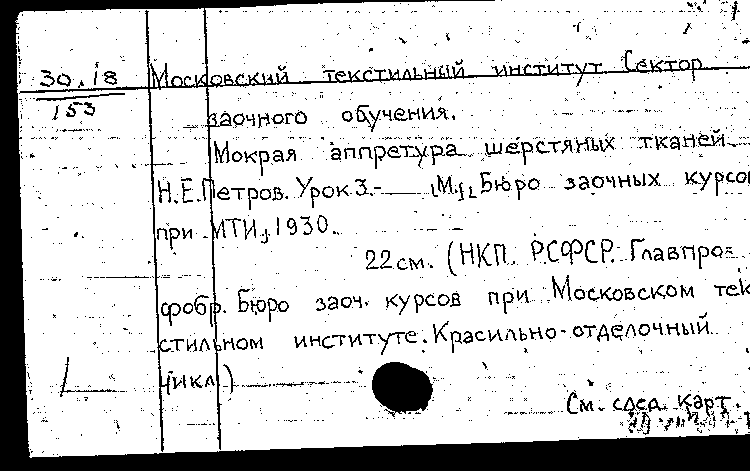 30.18 Московский текстильный институт Сектор
153 заочного обучения.
Мокрая аппретура шерстяных тканей
Н.Е.Петров. Урок 3.- [М.], Бюро заочных курсов
при МТИ, 1930.
22 см. (НКП. РСФСР. Главпро-
фобр. Бюро заоч. курсов при Московском тек-
стильном институте. Красильно-отделочный
цикл)
См. след. карт.